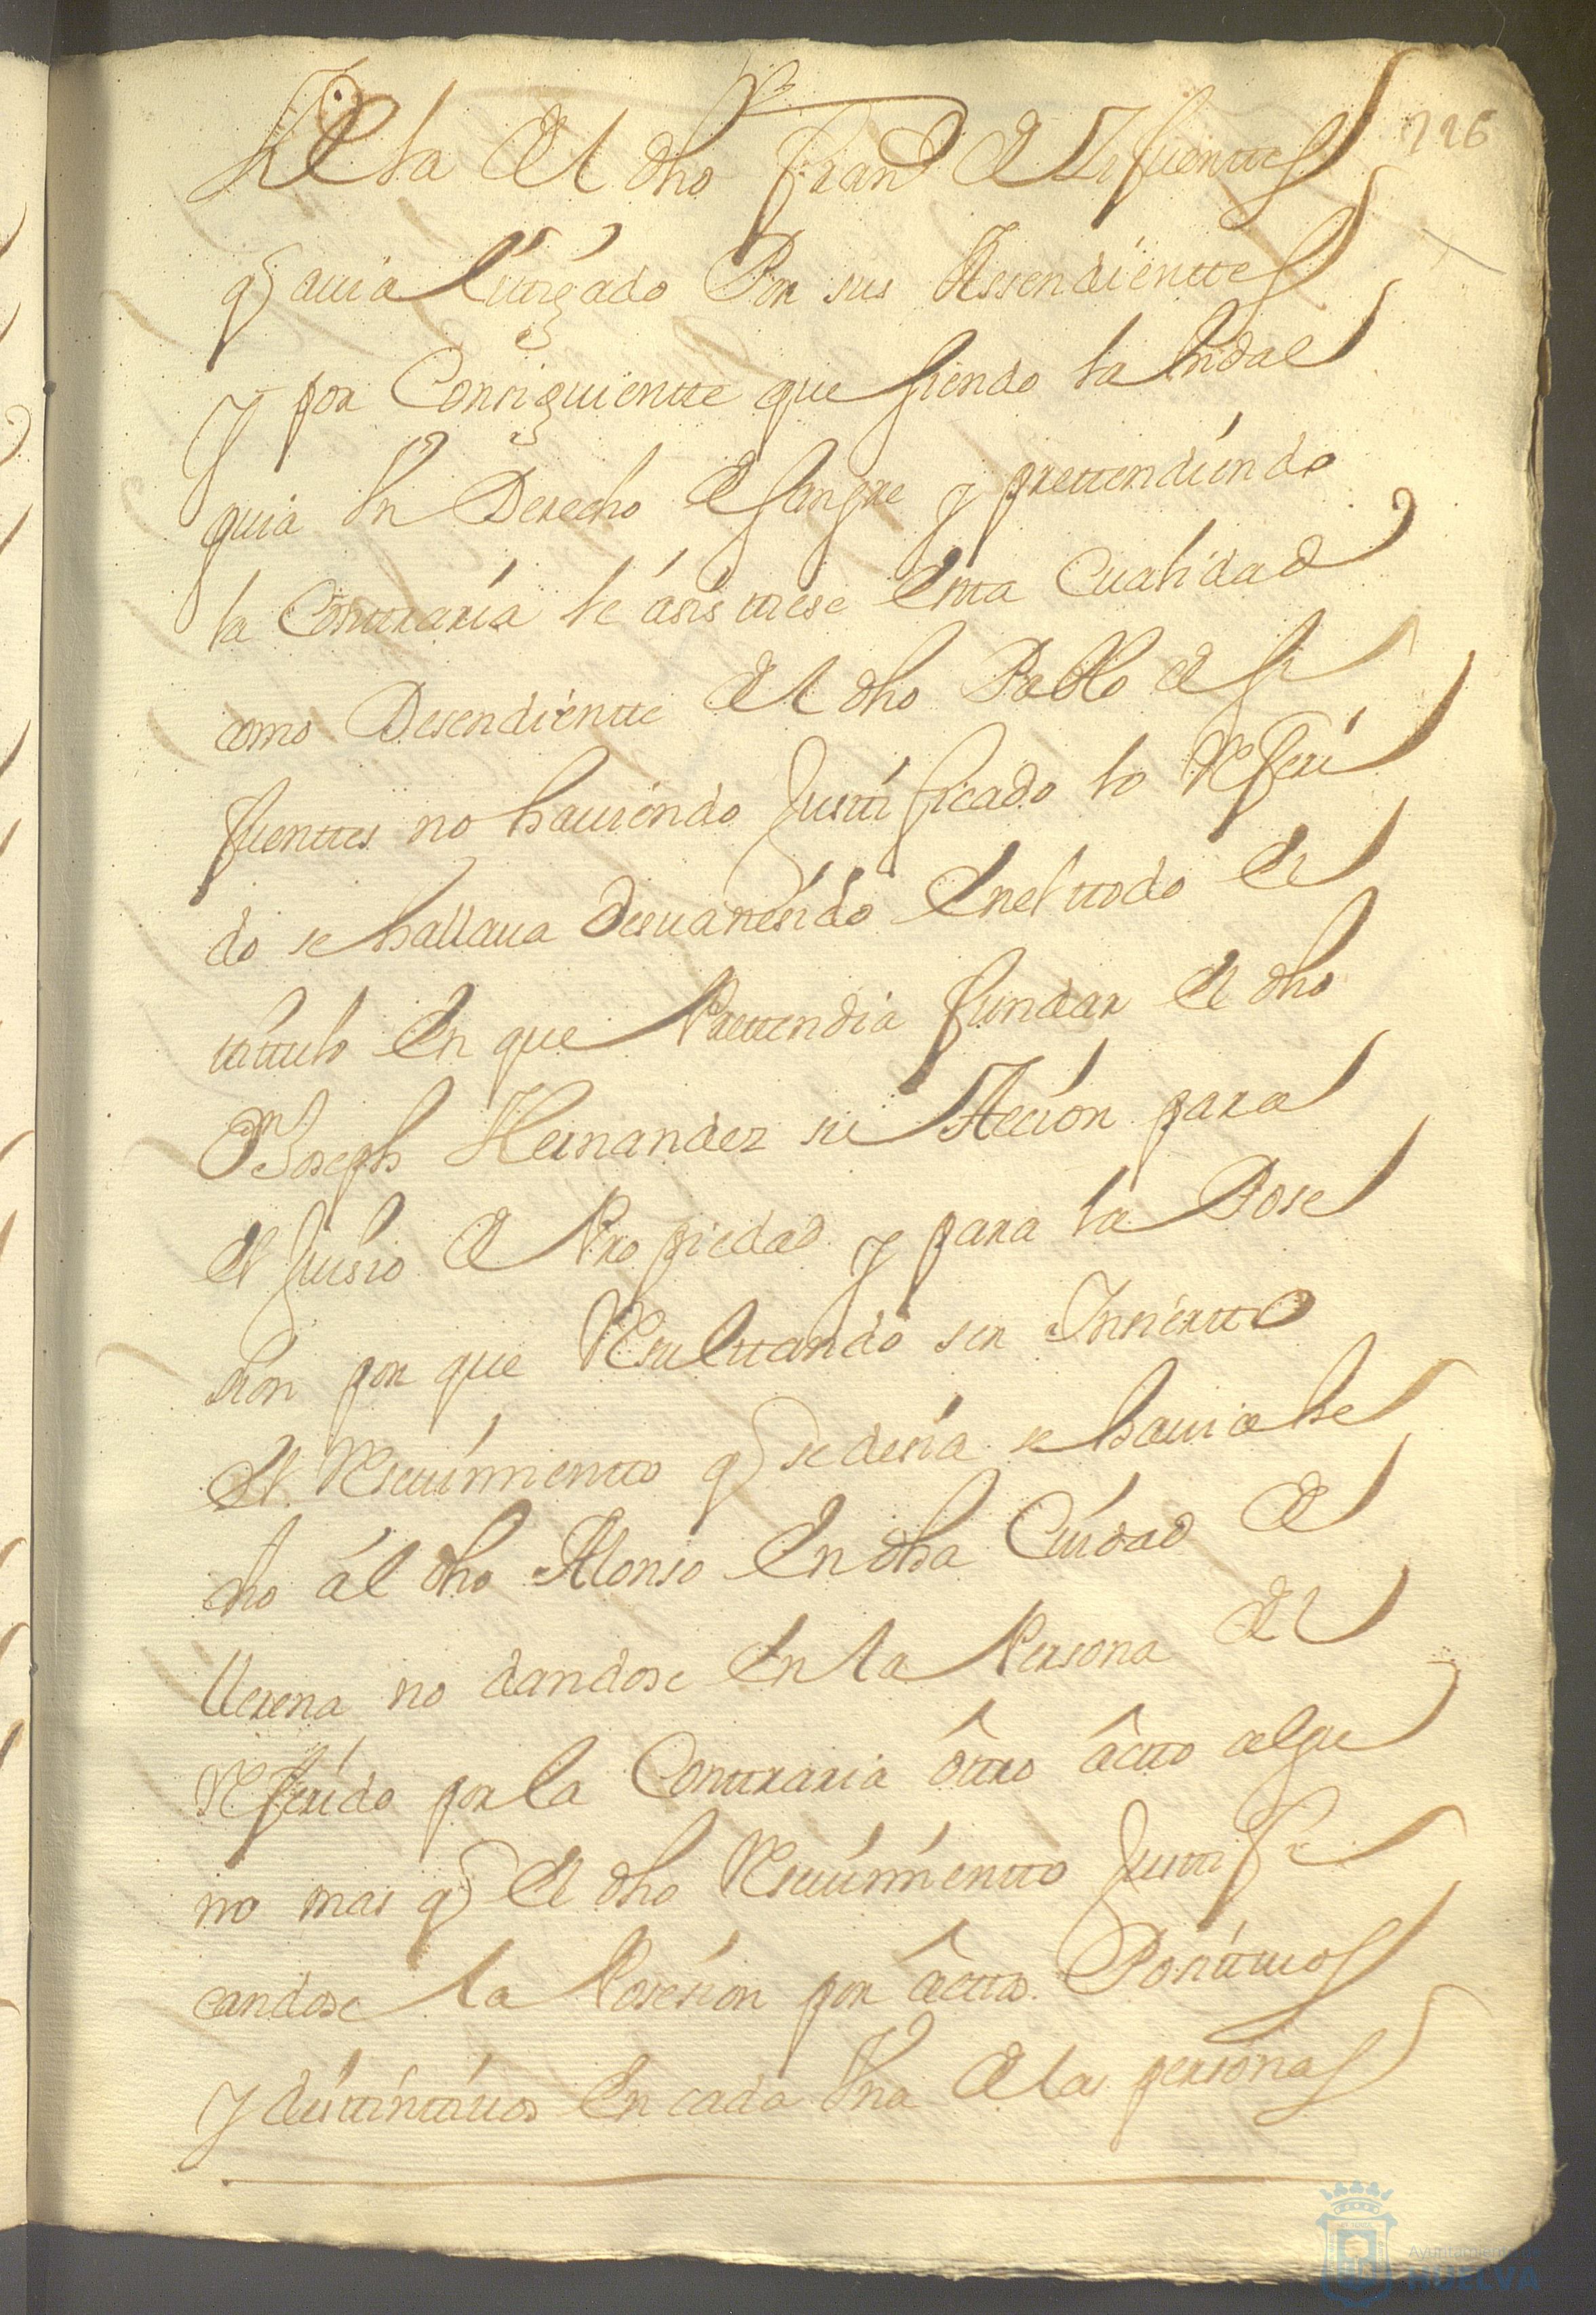 226
dela del dho fran.co de Zifuenttes
q auia litigado Por sus Assendienttes
Y por Consiguientte que siendo la Hidal
quia Un Derecho de sangre y prettendiendo
la Conttraria le asisttiese Estta Cualidad
como Desendientte del dho Pablo de Si
fuenttes no hauiendo Justtificado lo Referi
do se hallaua desuanesido Enel ttodo el
tittulo En que Prettendia fundar el dho
Joseph Hernandez su Accion para
el Juisio de Propiedad y para la Pose
sion por que Resulttando ser Insiertto
el Resiuimientto q se desia se hauia he
cho al dho Alonso En dha Ciudad de
llerena no dandose En la Persona del
Referido por la Conttraria ottro actto algu
no mas q el dho Resiuimientto Justtifi
candose la Posesion por acttos Posittiuos
Y disttinttiuos En cada Vna de las personas
Ayuntamiento de
HUELVA